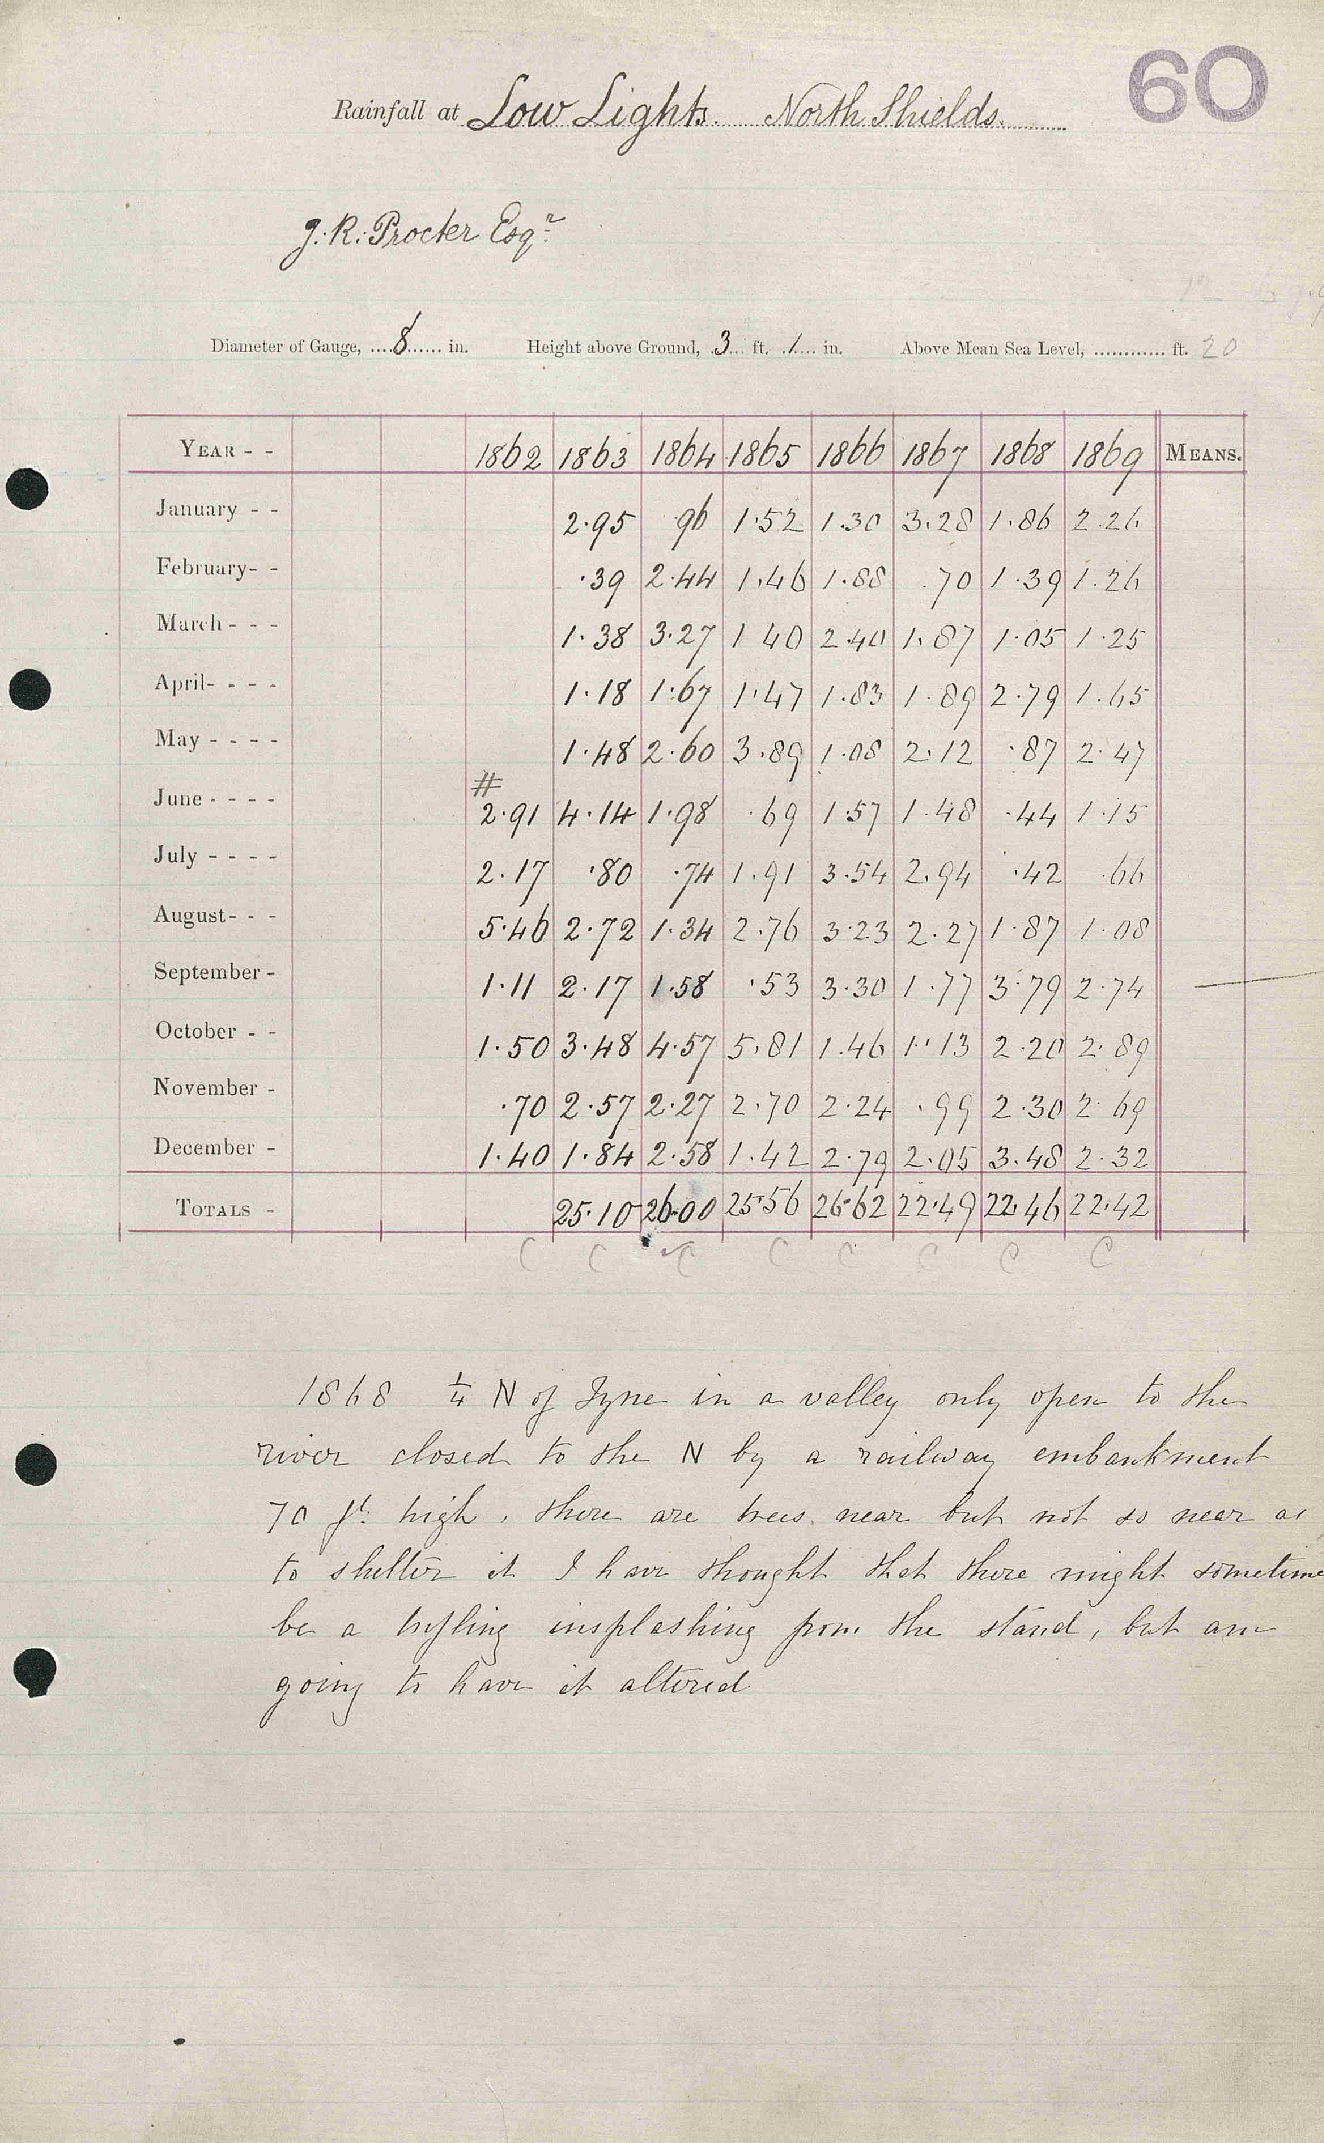 60
Rainfall at Low Lights. North Shields.
J. R. Procter Esqr
Diameter of Gauge, 8 in. Height above Ground, 3 ft. 1 in. Above Mean Sea Level, ft. 20
YEAR 1862 1863 1864 1865 1866 1867 1868 1869 MEANS.
January 2.95 .96 1.52 1.30 3.28 1.86 2.26
February .39 2.44 1.46 1.88 .70 1.39 1.26
March 1.38 3.27 1.40 2.40 1.87 1.05 1.25
April 1.18 1.67 1.47 1.83 1.89 2.79 1.65
May 1.48 2.60 3.89 1.08 2.12 .87 2.47
#
June 2.91 4.14 1.98 .69 1.57 1.48 .44 1.15
July 2.17 .80 .74 1.91 3.54 2.94 .42 .66
August 5.46 2.72 1.34 2.76 3.23 2.27 1.87 1.08
September 1.11 2.17 1.58 .53 3.30 1.77 3.79 2.74
October 1.50 3.48 4.57 5.81 1.46 1.13 2.20 2.89
November .70 2.57 2.27 2.70 2.24 .99 2.30 2.69
December 1.40 1.84 2.58 1.42 2.79 2.05 3.48 2.32
TOTALS 25.10 26.00 25.56 26.62 22.49 22.46 22.42
C C C C C C C C
1868 1/4 N of Tyne in a valley only open to the
river closed to the N by a railway embankment
70 ft. high, there are trees near but not so near as
to shelter it I have thought that there might sometime
be a trifling insplashing from the stand, but am
going to have it altered